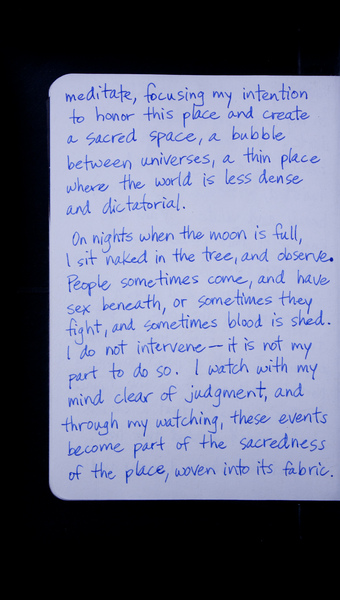 meditate, focusing my intention
to honor this place and create
a sacred space, a bubble
between universes, a thin place
where the world is less dense
and dictatorial.
On nights when the moon is full,
I sit naked in the tree, and observe.
People sometimes come, and have
sex beneath, or sometimes they
fight, and sometimes blood is shed.
I do not intervene — it is not my
part to do so. I watch with my
mind clear of judgment, and
through my watching, these events
become part of the sacredness
of the place, woven into its fabric.